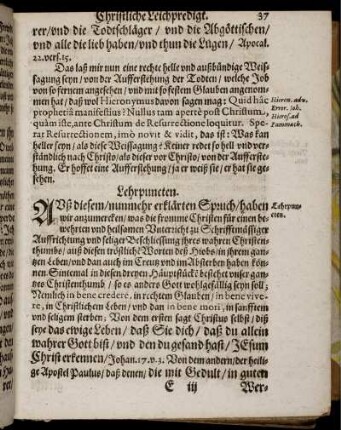 Christliche Leichpredigt. 37
rer/vnd die Todtschläger / vnd die Abgöttischen/
vnd alle die lieb haben/vnd thun die Lügen/ Apocal.
22. vers. 15.
Das laß mir nun eine rechte helle vnd außbündige Weis-
sagung seyn/von der Aufferstehung der Todten/ welche Job
von so fernem angesehen/ vnd mit so festem Glauben angenom-
men hat/ daß wol Hieronymus davon sagen mag: Quid hâc Hieron. adv.
prophetiâ manifestius? Nullus tam apertè post Christum, Error. Joh.
quàm iste, ante Christum de Resurrectione loquitur. Spe- Hierosol. ad
rat Resurrectionem, imò novit & vidit, das ist: Was kan Pammach.
heller seyn/ als diese Weissagung? Keiner redet so hell vnd ver-
ständlich nach Christo/als dieser vor Christo/ von der Aufferste-
hung. Er hoffet eine Aufferstehung/ ja er weiß sie/ er hat sie ge-
sehen.
Lehrpuncten.
AVß diesem/ nunmehr erklärten Spruch/ haben Lehrpun-
wir anzumercken/ was die fromme Christen für einen be- cten.
wehrten vnd heilsamen Vnterricht zu Schrifftmässiger
Auffrichtung vnd seliger Beschliessung ihres wahren Christen-
thumbs/ auß diesen tröstlichen Worten deß Hiobs/ in ihrem gan-
tzen Leben/ vnd dan auch im Creutz vnd im Absterben haben kön-
nen. Sintemal in diesen dreyen Häuptstücken bestehet vnser gan-
tzes Christenthumb / so es anders Gott wolgefällig seyn soll;
Nemlich in bene credere, in rechtem Glauben/ in bene vive-
re, in Christlichem Leben/ vnd dan in bene mori, in sanfftem
vnd seligem sterben: Von dem ersten sagt Christus selbst/ diß
seye das ewige Leben/ daß Sie dich/ daß du allein
wahrer Gott bist/ vnd den du gesand hast/ JEsum
Christ erkennen/ Johan. 17. v. 3. Von dem andern/ der heili-
ge Apostel Paulus/ daß denen/ die mit Gedult / in guten
E iij Wer-